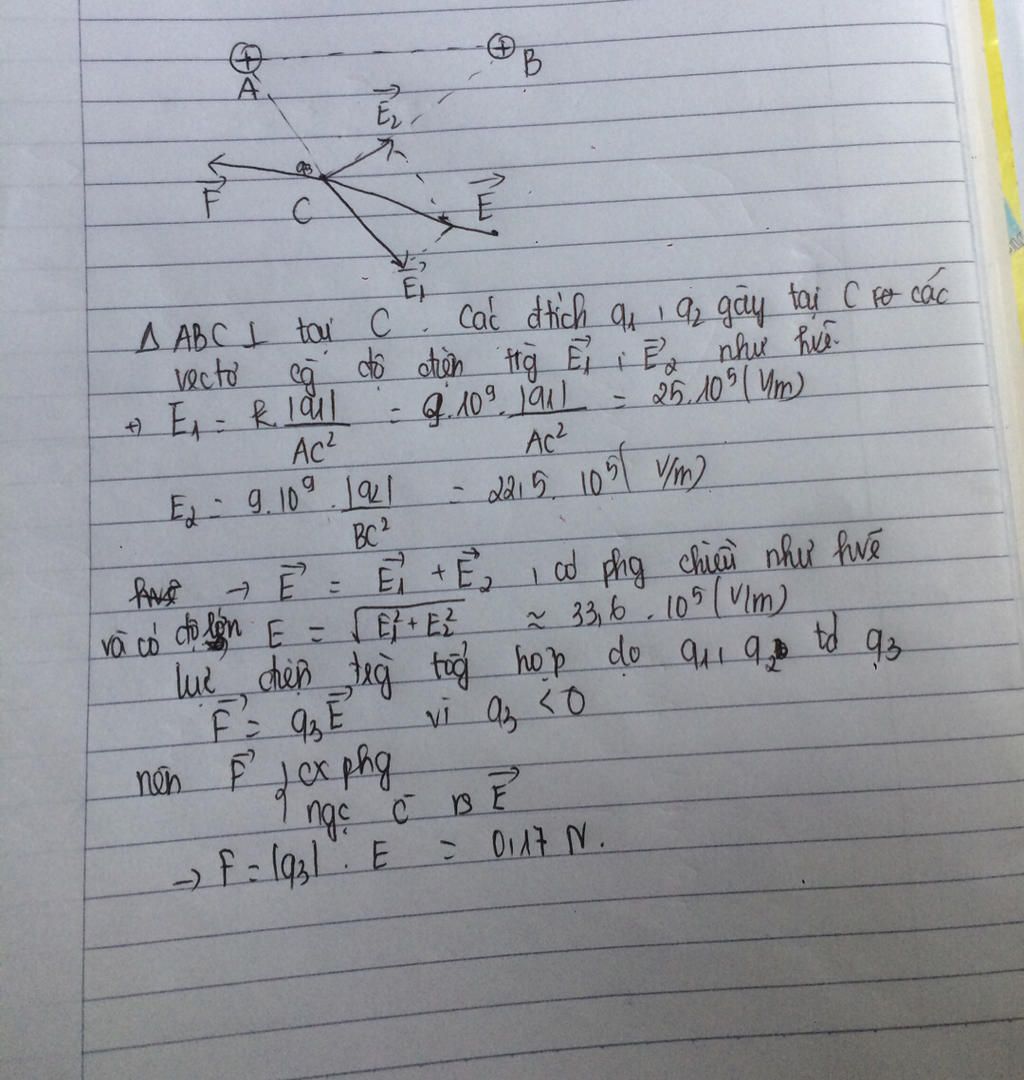 A
B
E₂
q₃
F
C
E
E₁
Δ ABC ⊥ tại C. Các đtích q₁, q₂ gây tại C các
vectơ cg độ điện trg E₁; E₂ như hvẽ
+) E₁ = k.|q₁|/AC² = 9.10⁹.|q₁|/AC² = 25.10⁵(V/m)
E₂ = 9.10⁹.|q₂|/BC² = 22,5.10⁵(V/m)
→ E = E₁ + E₂, có phg chiều như hvẽ
và có độ lớn E = √(E₁² + E₂²) ≈ 33,6.10⁵(V/m)
lực điện trg tổg hợp do q₁, q₂ td q₃
F = q₃E vì q₃ < 0
nên F { cx phg
ngc c vs E
→ F = |q₃|.E = 0,17 N.